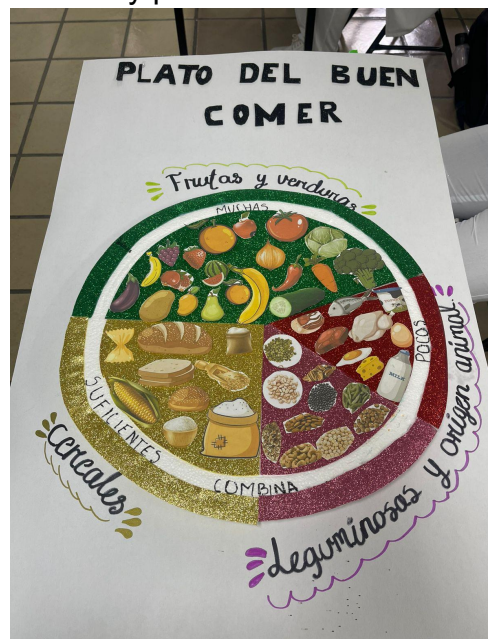 PLATO DEL BUEN
COMER
Frutas y verduras
MUCHAS
POCOS
SUFICIENTES
COMBINA
Cereales
Leguminosas y origen animal
MILK